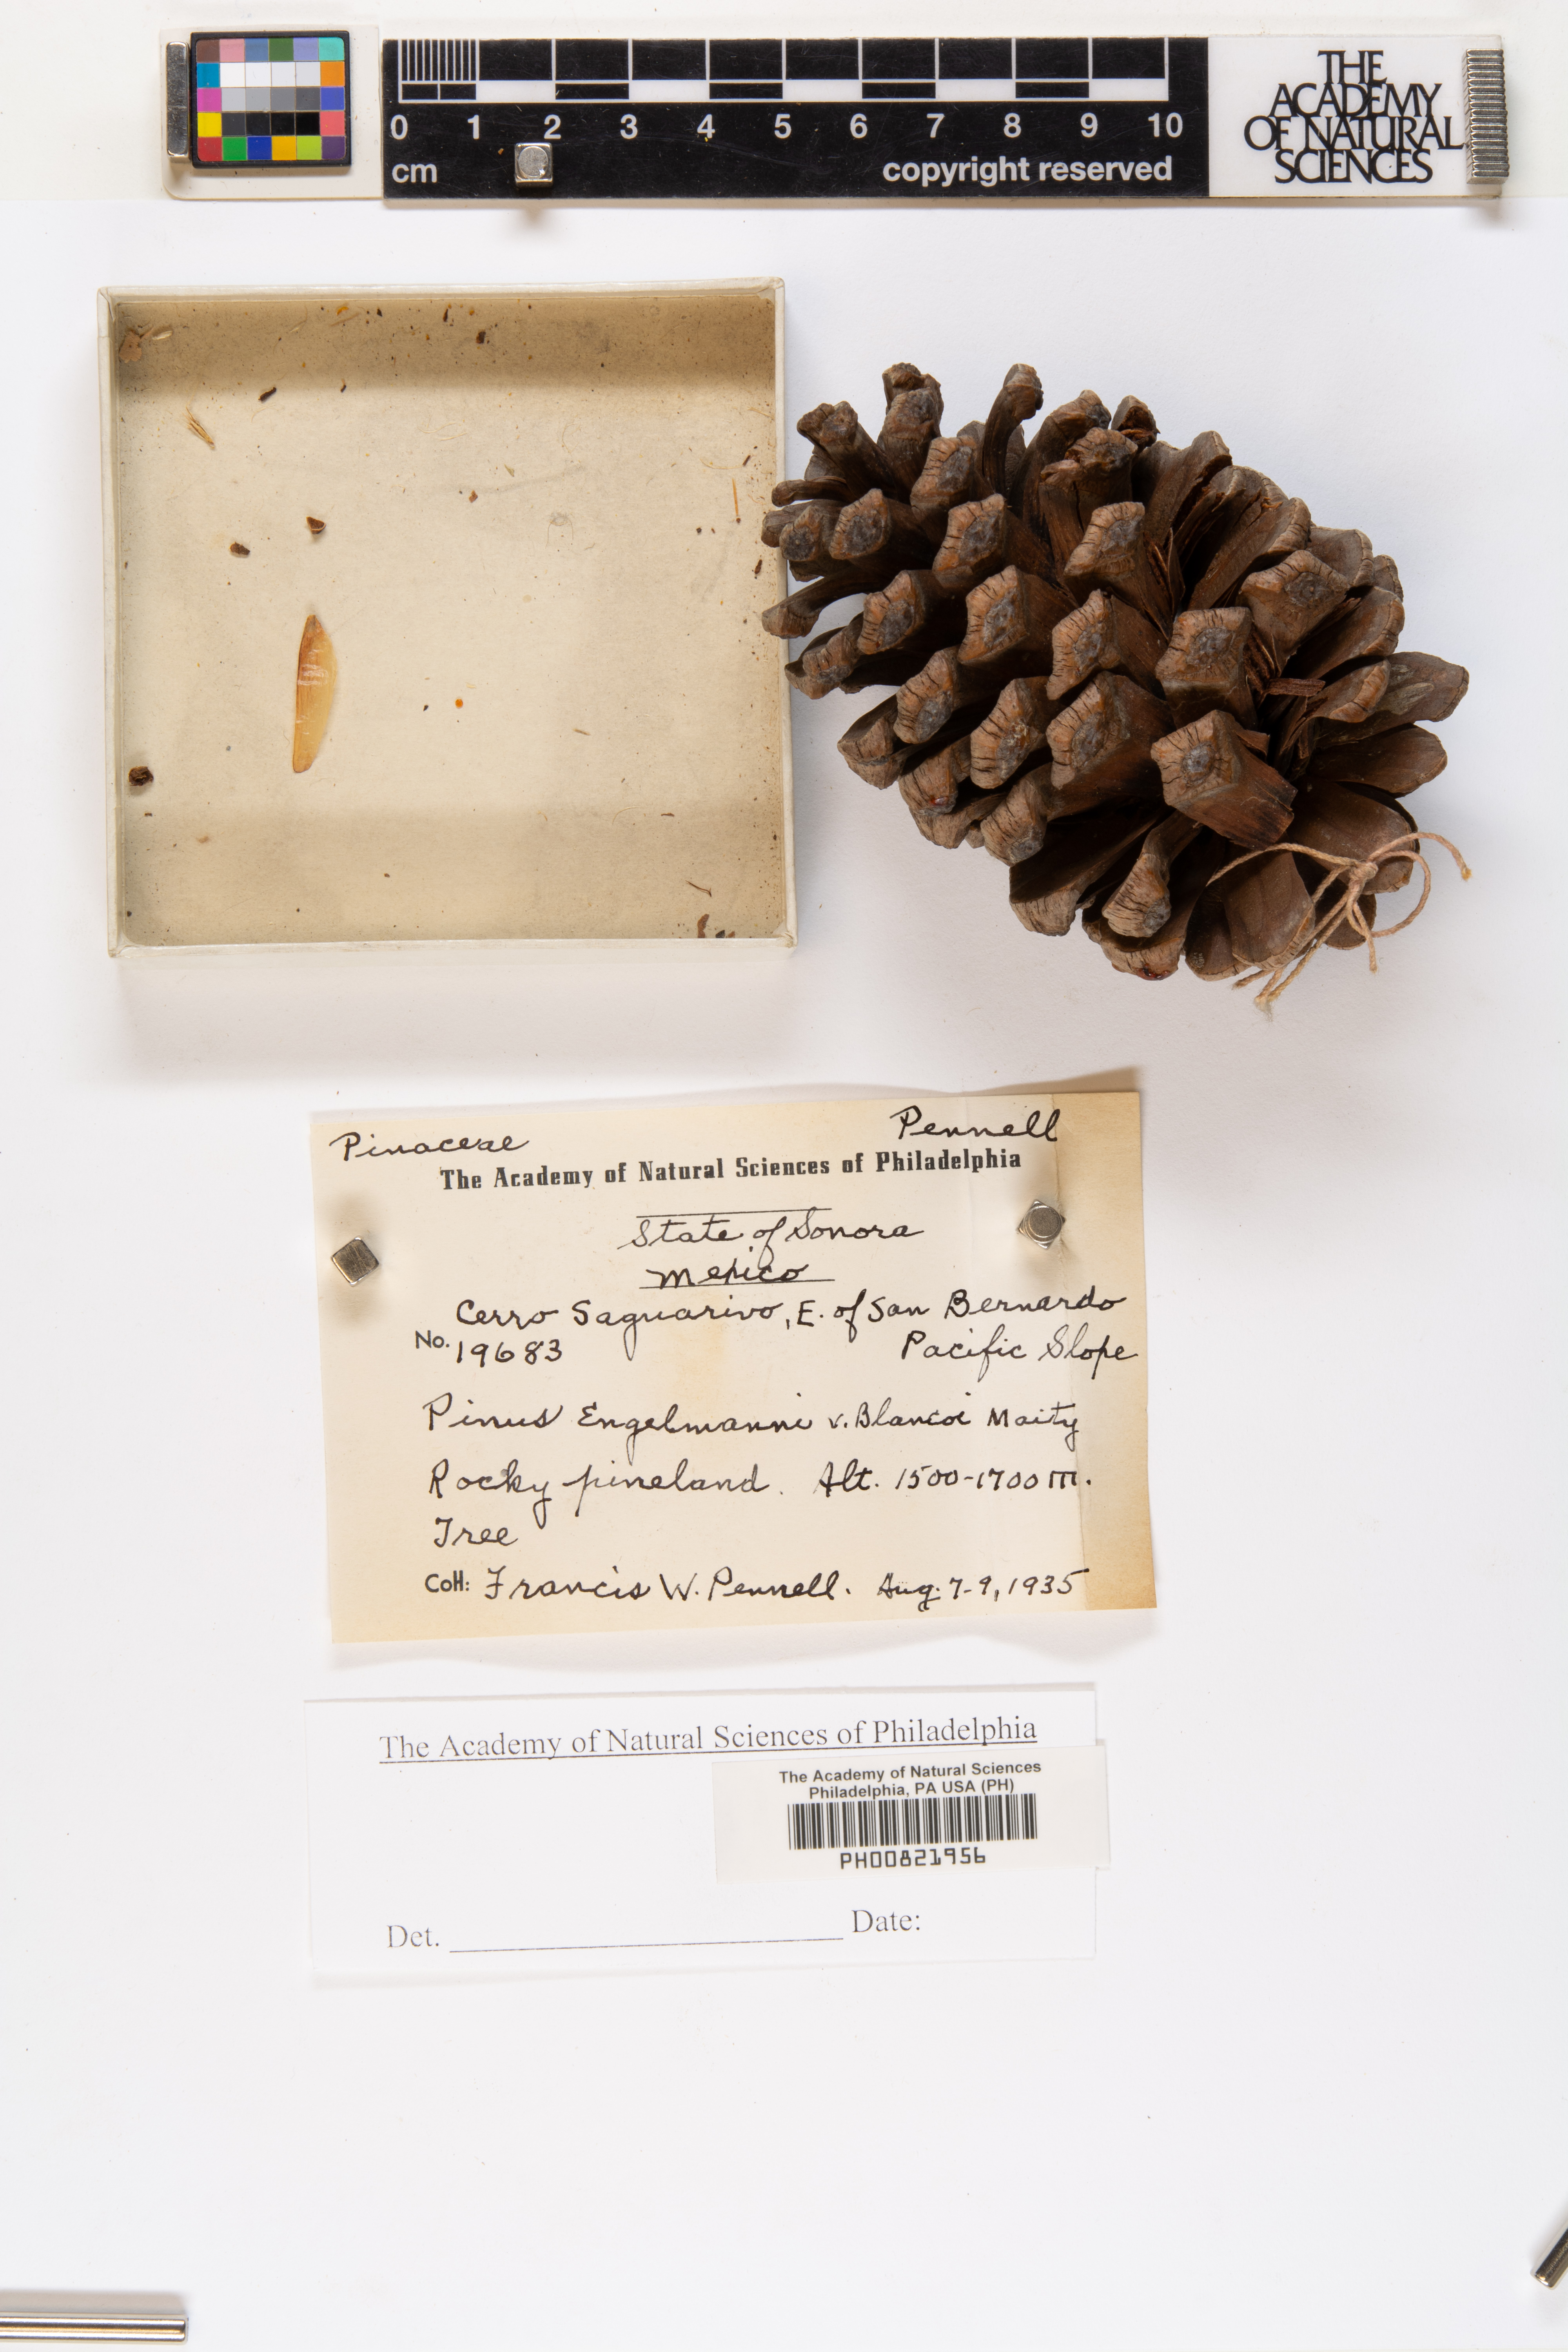 0 1 2 3 4 5 6 7 8 9 10
cm copyright reserved
THE
ACADEMY
OF NATURAL
SCIENCES
Pinaceae Pennell
The Academy of Natural Sciences of Philadelphia
State of Sonora
Mexico
Cerro Saguarivo, E. of San Bernardo
No. 19683 Pacific Slope
Pinus Engelmanni v. Blancoi
Rocky pineland. Alt. 1500-1700 m.
Tree
Coll: Francis W. Pennell. Aug. 7-9, 1935
The Academy of Natural Sciences of Philadelphia
The Academy of Natural Sciences
Philadelphia, PA USA (PH)
PH00821956
Det. Date: